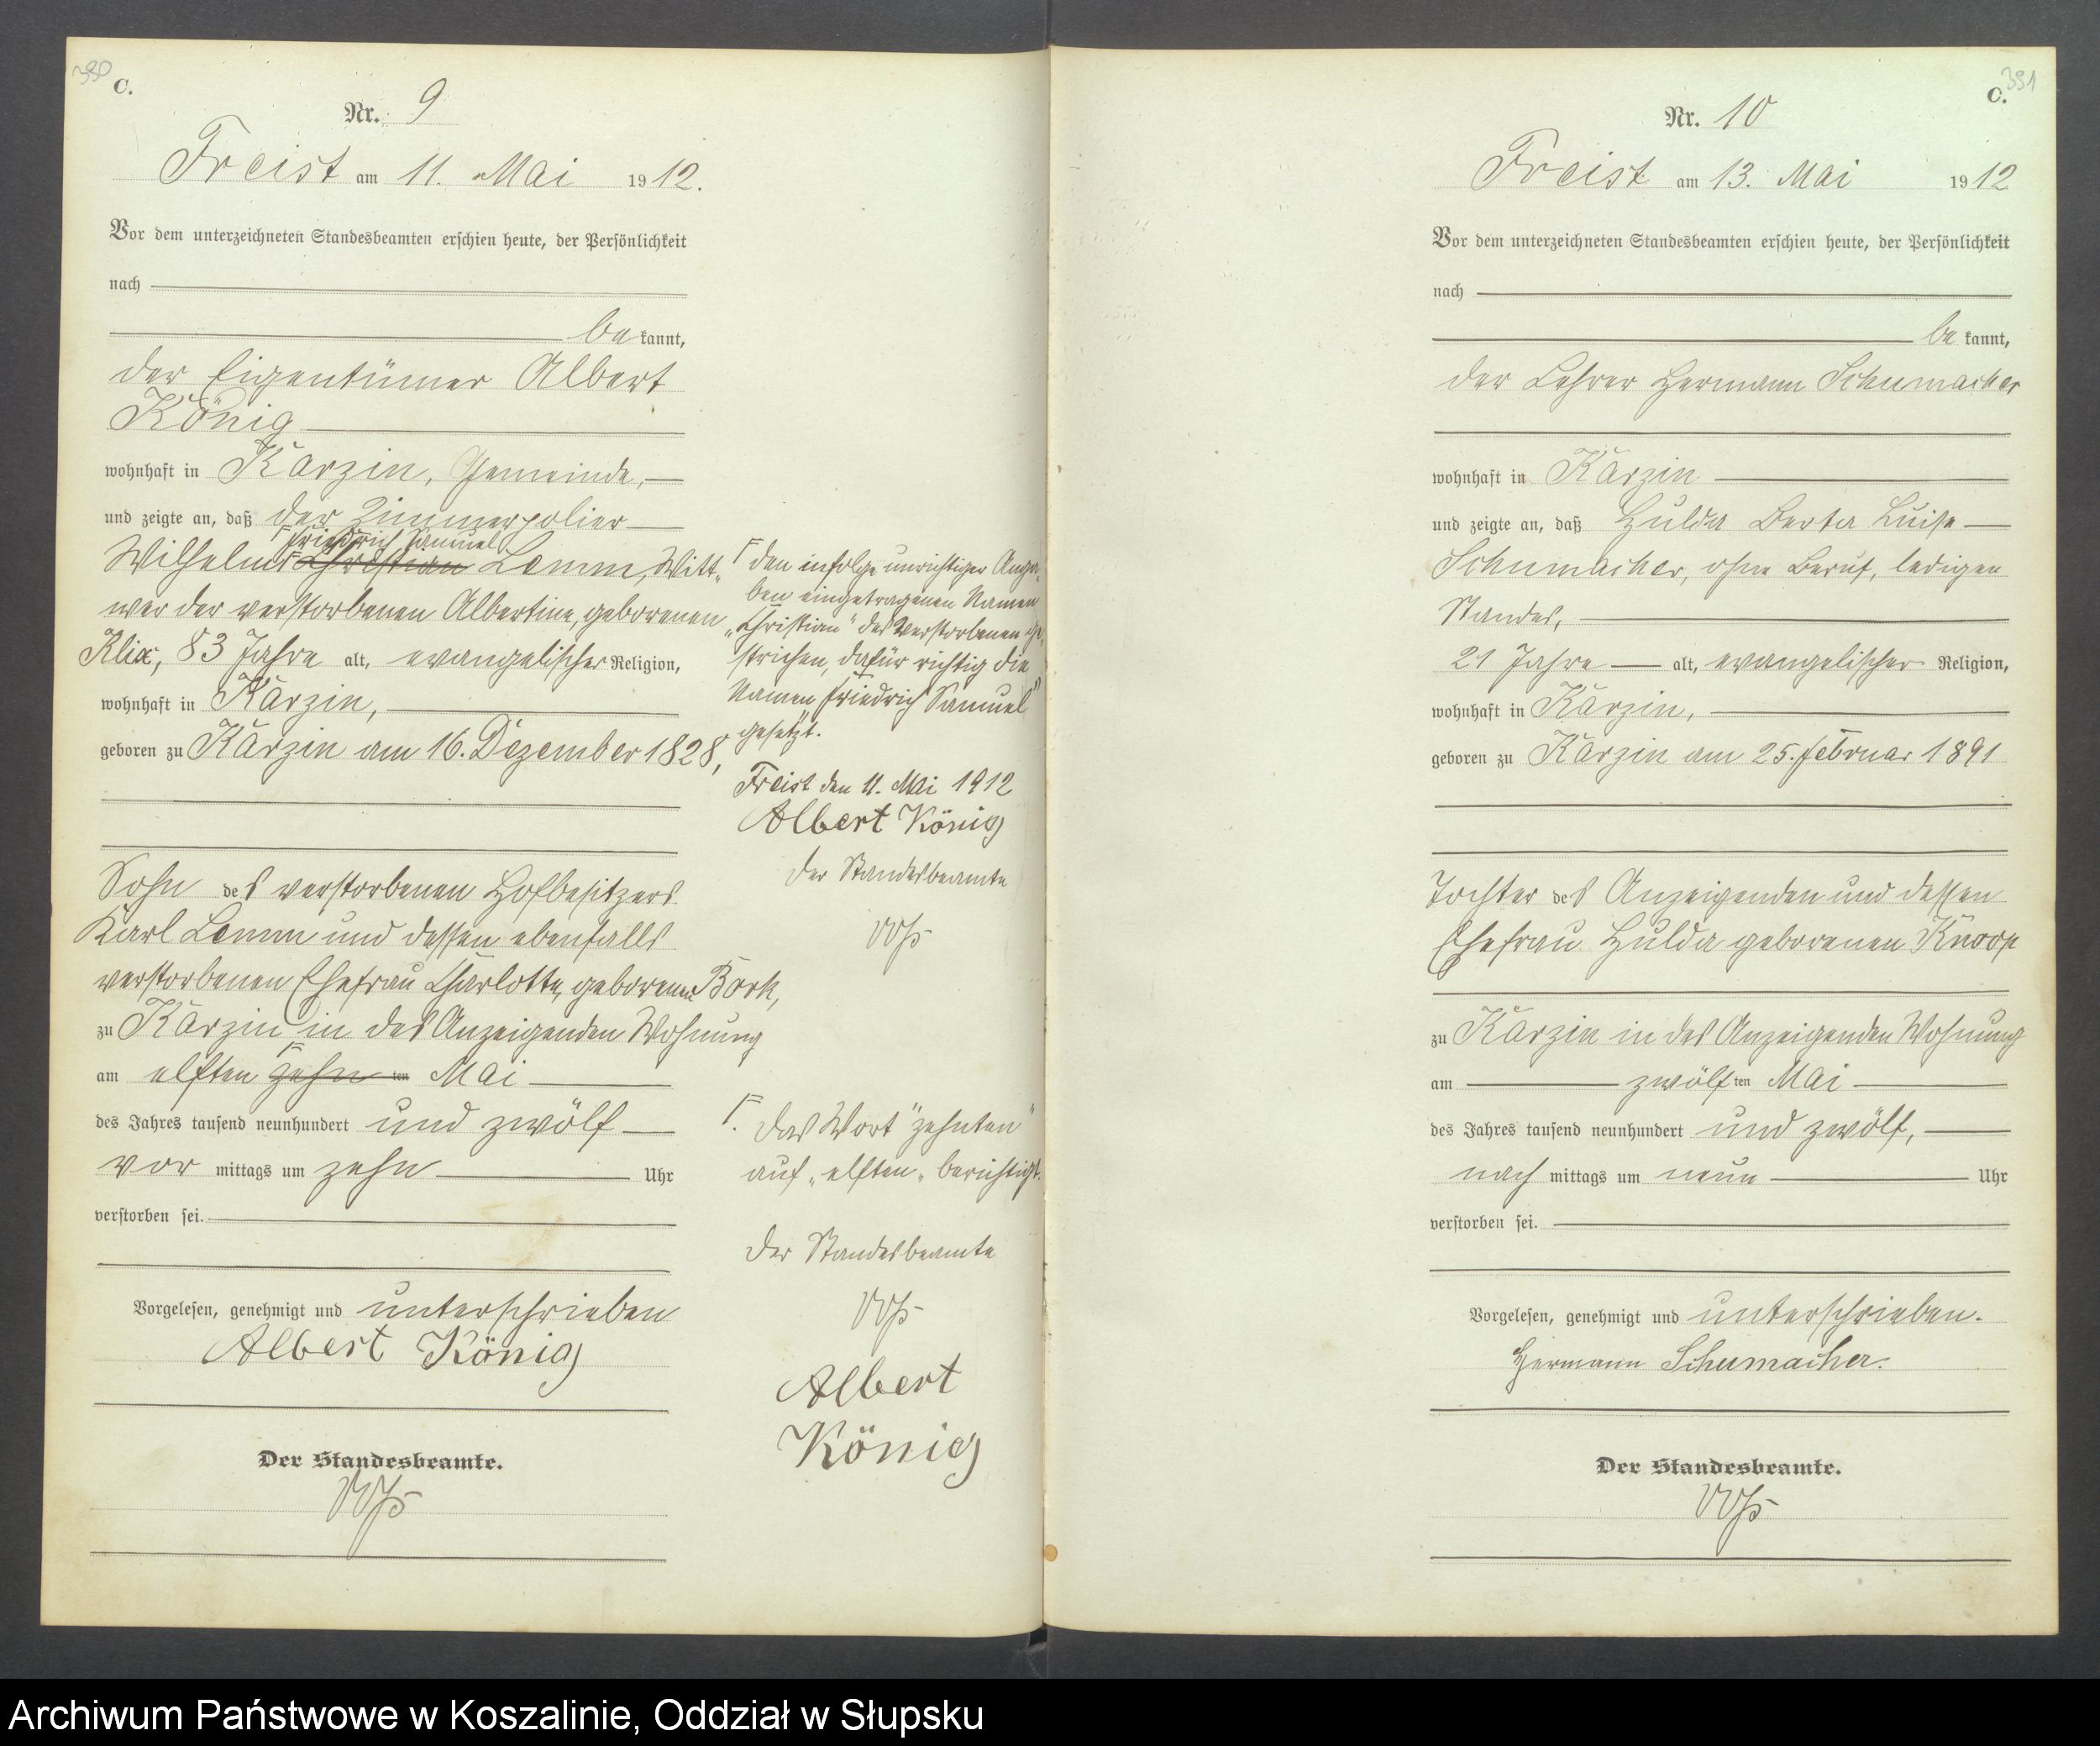 380
C.
Nr. 9
Freist am 11. Mai 1912.
Vor dem unterzeichneten Standesbeamten erschien heute, der Persönlichkeit
nach
bekannt,
der Eigentümer Albert
König
wohnhaft in Karzin, Gemeinde,
und zeigte an, daß der Zimmerpolier
Friedrich Samuel
Wilhelm Christian Lemm, Witt-
wer der verstorbenen Albertine, geborenen
Klix, 83 Jahre alt, evangelischer Religion,
wohnhaft in Karzin,
geboren zu Karzin am 16. Dezember 1828,
Sohn des verstorbenen Hofbesitzers
Karl Lemm und dessen ebenfalls
verstorbenen Ehefrau Charlotte, geborenen Bork,
zu Karzin in des Anzeigenden Wohnung
am elften zehnten Mai
des Jahres tausend neunhundert und zwölf
vor mittags um zehn Uhr
verstorben sei.
Vorgelesen, genehmigt und unterschrieben
Albert König
Der Standesbeamte.
den infolge unrichtiger Anga-
ben eingetragenen Namen
„Christian" des Verstorbenen ge-
strichen, dafür richtig die
Namen „Friedrich Samuel"
gesetzt.
Freist den 11. Mai 1912
Albert König
Der Standesbeamte
Das Wort "zehnten"
auf „elften„ berichtigt.
Der Standesbeamte
Albert
König
381
C.
Nr. 10
Freist am 13. Mai 1912
Vor dem unterzeichneten Standesbeamten erschien heute, der Persönlichkeit
nach
bekannt,
der Lehrer Hermann Schumacher
wohnhaft in Karzin
und zeigte an, daß Hulda Berta Luise
Schumacher, ohne Beruf, ledigen
Standes,
21 Jahre alt, evangelischer Religion,
wohnhaft in Karzin,
geboren zu Karzin am 25. Februar 1891
Tochter des Anzeigenden und dessen
Ehefrau Hulda geborenen Knoop
zu Karzin in des Anzeigenden Wohnung
am zwölften Mai
des Jahres tausend neunhundert und zwölf,
nach mittags um neun Uhr
verstorben sei.
Vorgelesen, genehmigt und unterschrieben.
Hermann Schumacher.
Der Standesbeamte.
Archiwum Państwowe w Koszalinie, Oddział w Słupsku